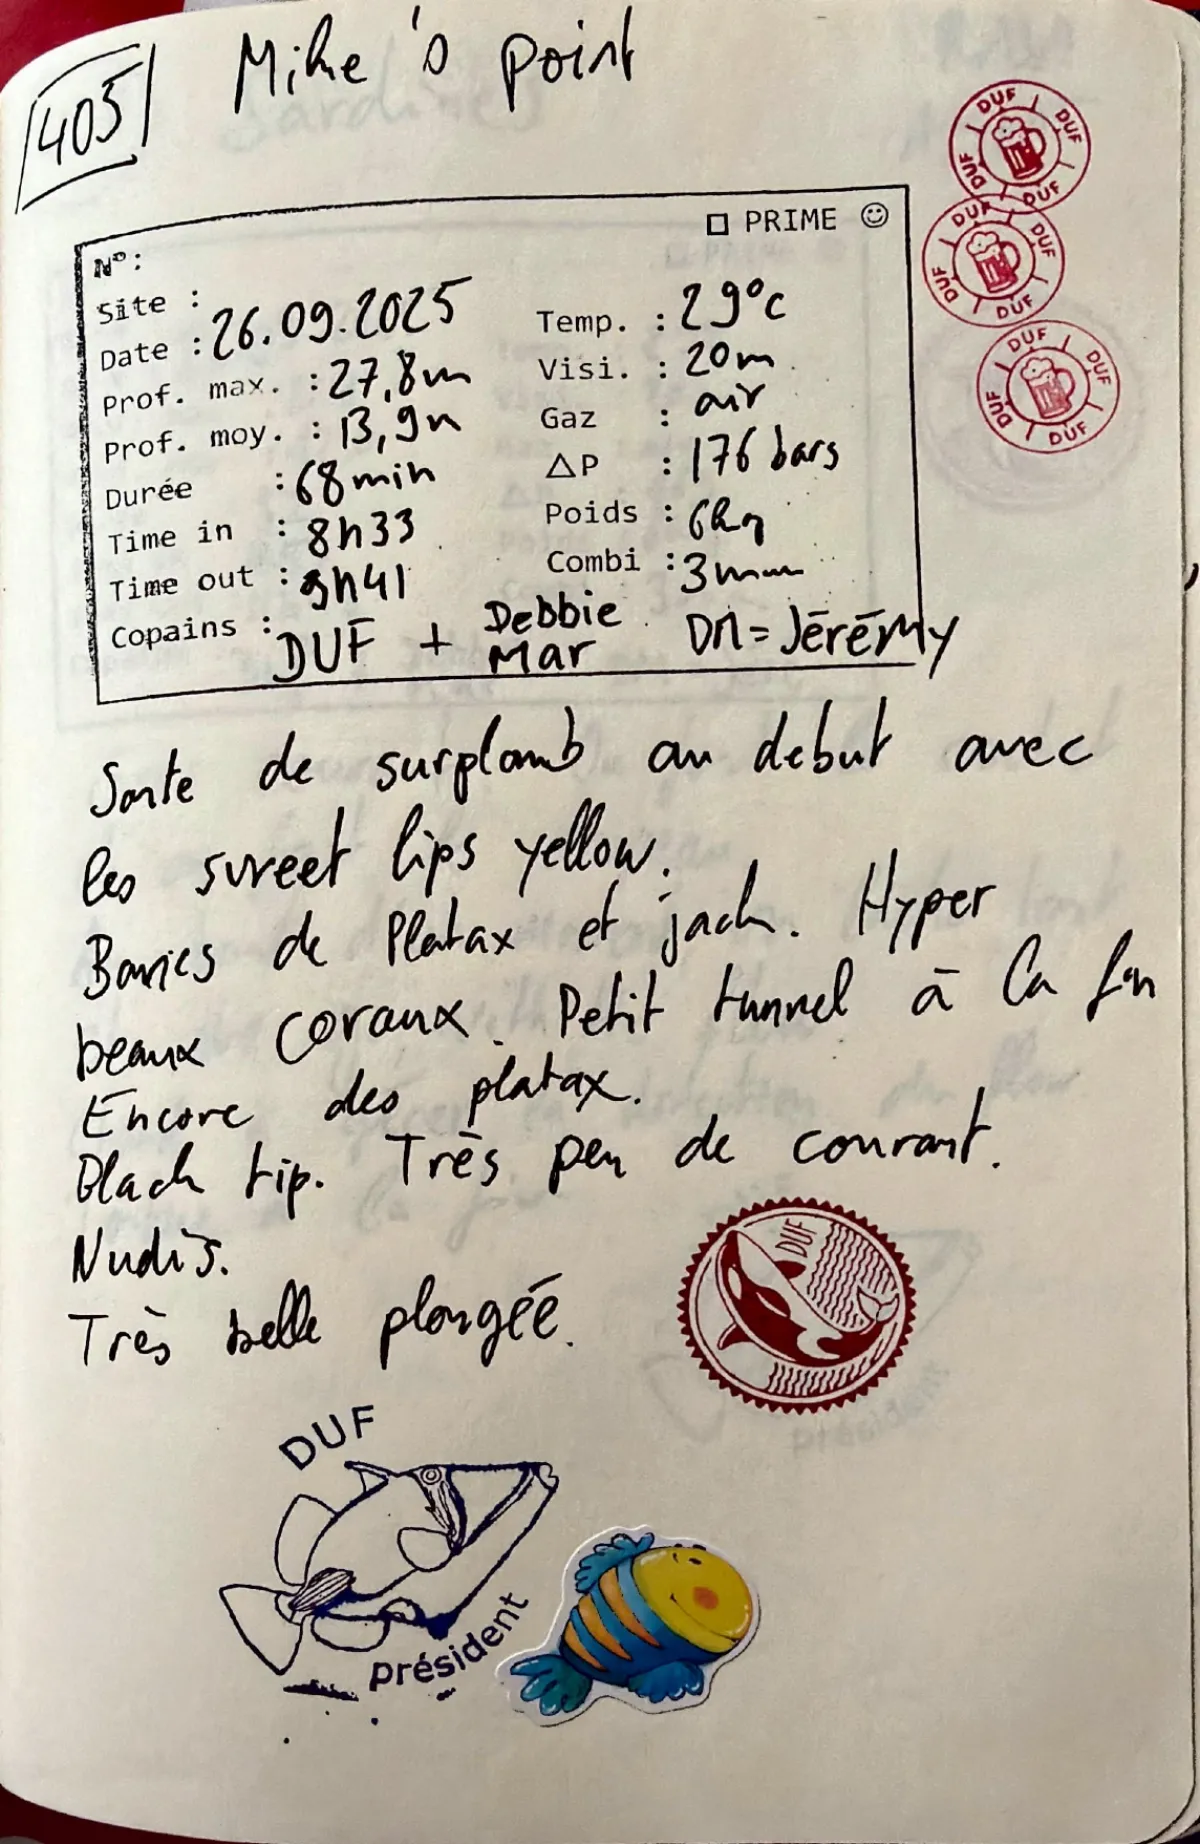 405
Mike's point
□ PRIME ☺
N°:
Site :
Date : 26.09.2025
Prof. max. : 27,8m
Prof. moy. : 13,9m
Durée : 68min
Time in : 8h33
Time out : 9h41
Temp. : 29°c
Visi. : 20m
Gaz : air
ΔP : 176 bars
Poids : 6kg
Combi : 3mm
Copains : DUF + Debbie Mar DM=Jérémy
Sorte de surplomb au debut avec
les sweet lips yellow.
Bancs de Platax et jack. Hyper
beaux coraux. Petit tunnel à la fin
Encore des platax.
Black tip. Très peu de courant.
Nudis.
Très belle plongée.
DUF DUF DUF DUF DUF
DUF DUF DUF DUF
DUF DUF DUF DUF
DUF
DUF
président